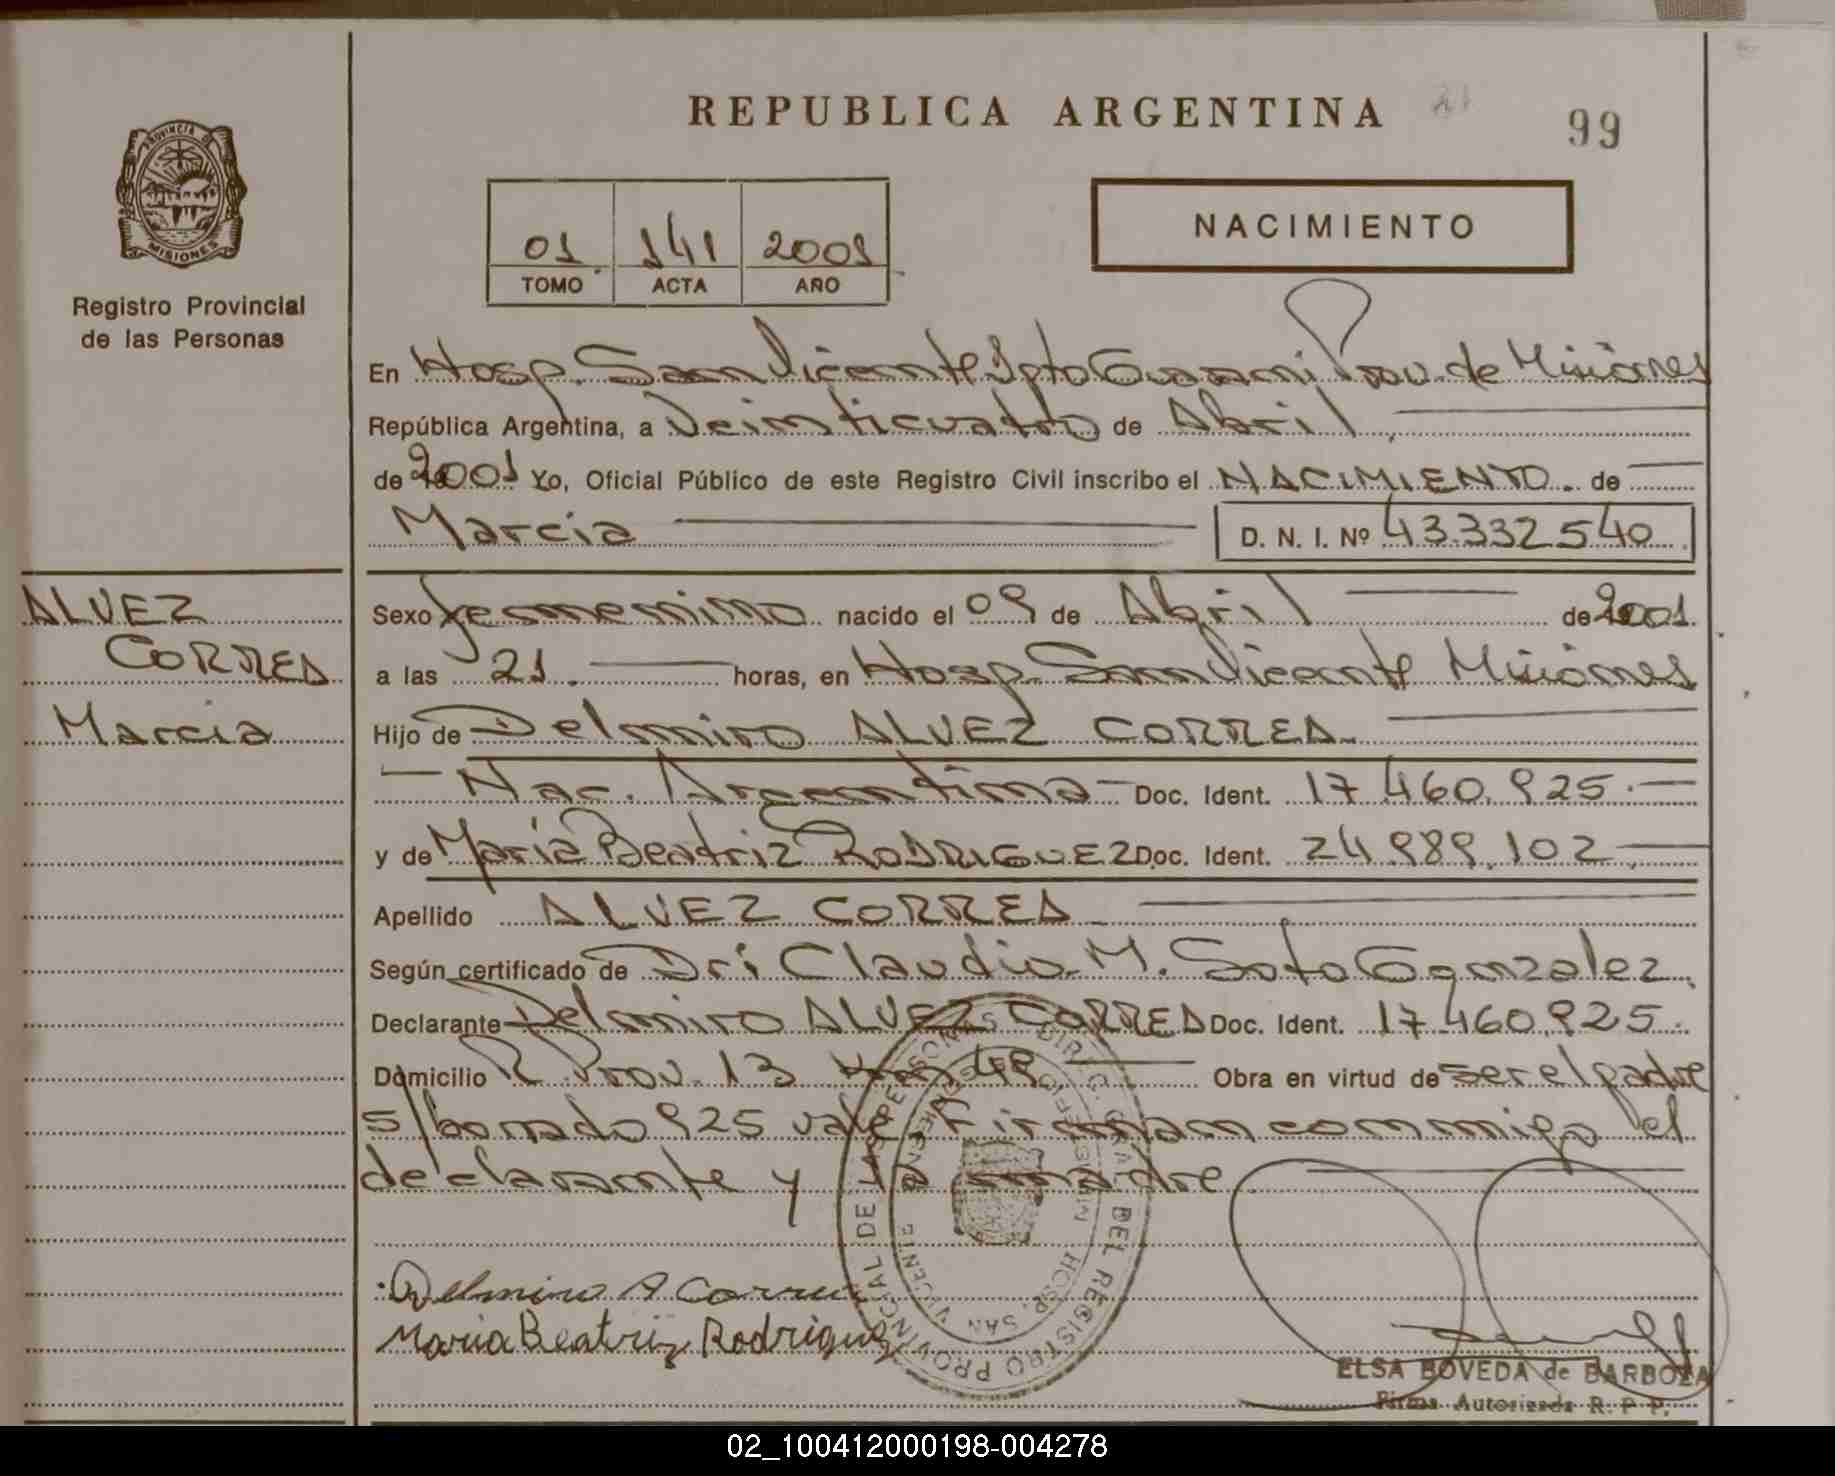 REPUBLICA ARGENTINA
99
PROVINCIA D
MISIONES
Registro Provincial
de las Personas
01 141 2001
TOMO ACTA AÑO
NACIMIENTO
En Hosp. San Vicente Dpto Guarani Prov. de Misiones
República Argentina, a Veinticuatro de Abril
de 2001 Yo, Oficial Público de este Registro Civil inscribo el NACIMIENTO. de
Marcia D. N. I. Nº 43.332.540
ALVEZ
CORREA
Marcia
Sexo femenino nacido el 09 de Abril de 2001
a las 21. horas, en Hosp. San Vicente Misiones
Hijo de Delmiro ALVEZ CORREA.
Nac. Argentina Doc. Ident. 17.460.925.
y de Maria Beatriz RODRIGUEZ Doc. Ident. 24.989.102
Apellido ALVEZ CORREA
Según certificado de Dr: Claudio M. Soto Gonzalez
Declarante Delmiro ALVEZ CORREA Doc. Ident. 17.460.925.
Domicilio R. Prov. 13 Km 49 Obra en virtud de ser el padre
s/borrado 925 vale. Firman conmigo el
declarante y la madre
Delmiro A Correa
Maria Beatriz Rodriguez
DIREC. GRAL DEL REGISTRO PROVINCIAL DE LAS PERSONAS
HOSP. SAN VICENTE
ELSA BOVEDA de BARBOZA
Firma Autorizada R. P. P.
02_100412000198-004278